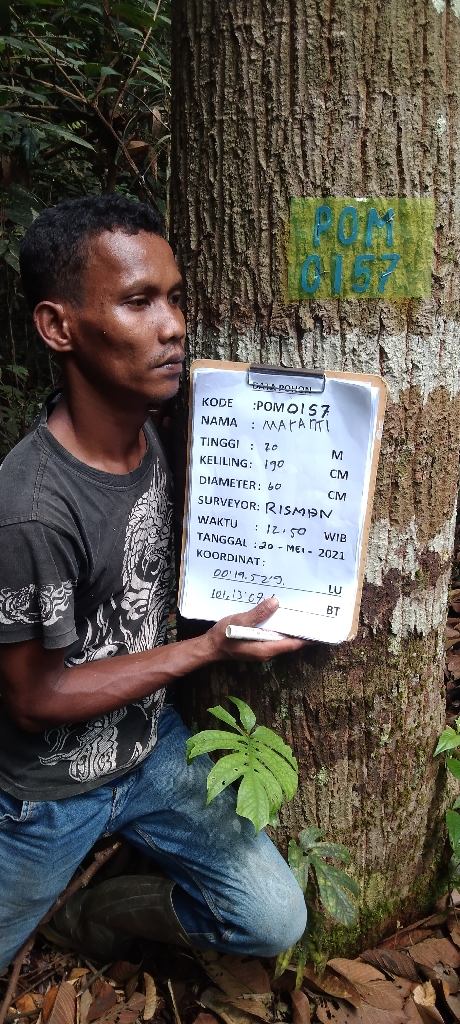 POM
0157
DATA POHON
KODE :POM0157
NAMA : MAHANTI
TINGGI : 20 M
KELILING: 190 CM
DIAMETER: 60 CM
SURVEYOR: RISMAN
WAKTU : 12:50 WIB
TANGGAL :20 - MEI - 2021
KOORDINAT:
00.19.52.9. LU
101.13.09. BT